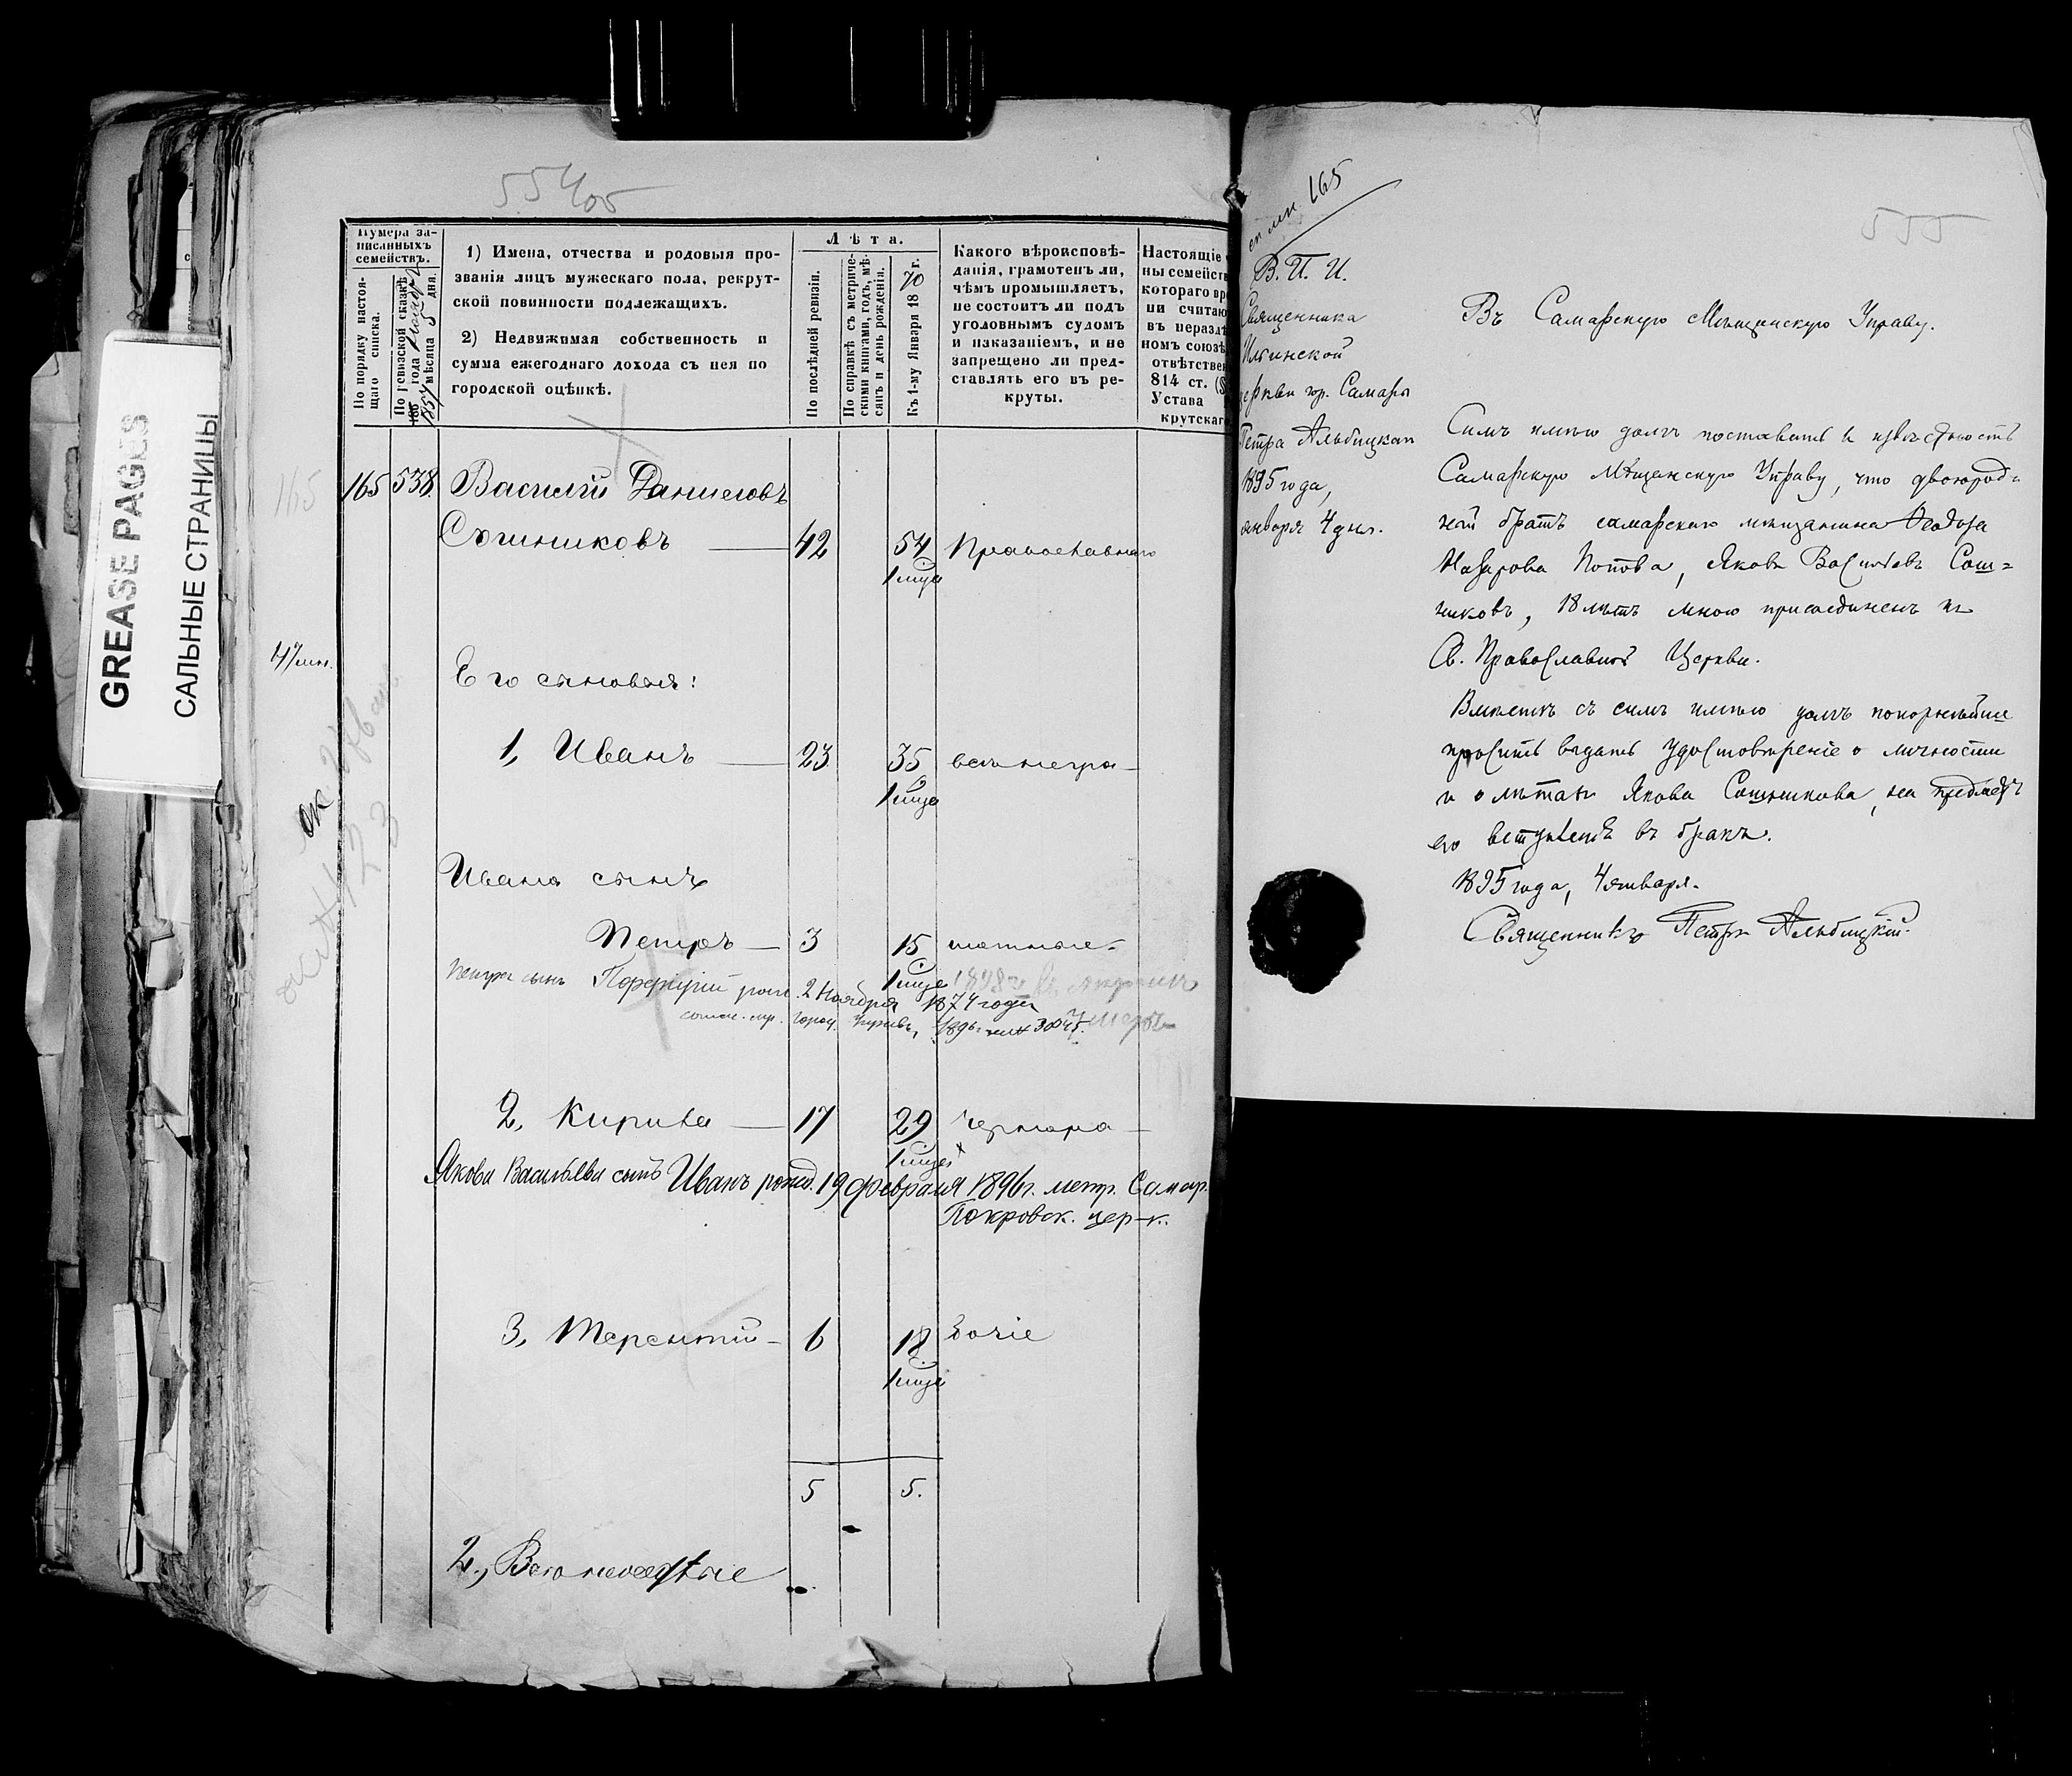 GREASE PAGES
САЛЬНЫЕ СТРАНИЦЫ
Нумера за-
писанныхъ
семействъ.
По порядку настоя-
щаго списка.
По ревизской сказкѣ
186 года
мѣсяца 5 дня.
1) Имена, отчества и родовыя про-
званія лицъ мужескаго пола, рекрут-
ской повинности подлежащихъ.
2) Недвижимая собственность и
сумма ежегоднаго дохода съ нея по
городской оцѣнкѣ.
Лѣта.
По послѣдней ревизіи.
По справкѣ съ метриче-
скими книгами, годъ, мѣ-
сяцъ и день рожденія.
Къ 1-му Января 1870 г.
Какого вѣроисповѣ-
данія, грамотенъ ли,
чѣмъ промышляетъ,
не состоитъ ли подъ
уголовнымъ судомъ
и наказаніемъ, и не
запрещено ли пред-
ставлять его въ ре-
круты.
Настоящіе
ны семейст
котораго вр
ни считаю
въ нераздѣ
номъ союзѣ
отвѣтствен
814 ст. (§
Устава
крутскаг
165
165 538 Василій Даниловъ
42 54 Православнаго
1 лица
47 лит.
Его сыновья:
1, Иванъ 23 35 всѣ негра-
1 лица
Ивана сынъ
Петръ 3 15 мотные.
1 лице
Петра сынъ Порфирій роил. 2 Ноября 1874 года
город. 1896 г. 3845. умеръ
2, Кирила 17 29
1 лице
Якова Васильева сынъ Иванъ рожд. 19 февраля 1896 г. метр. Самар.
Покровск. церк.
3, Терентій 6 18 бочіе
1 лице
5 5.
165
555
В. П. И.
Священника
Ильинской
церкви гор. Самары
Петра Альбицкаго
1895 года,
января 4 дня.
Въ Самарскую Мѣщанскую Управу.
Симъ имѣю долгъ поставить въ извѣстность
Самарскую Мѣщанскую Управу, что двоюрод-
ной братъ самарскаго мѣщанина Ѳеодора
Назарова Попова, Яковъ Васильевъ Сош=
никовъ, 18 лѣтъ мною присоединенъ къ
Св. Православной Церкви.
Вмѣстѣ съ симъ имѣю долгъ покорнѣйше
просить выдать удостовѣреніе о личности
и о лѣтахъ Якова Сошникова, на предметъ
его вступленія въ бракъ.
1895 года, 4 января.
Священникъ Петръ Альбицкій.